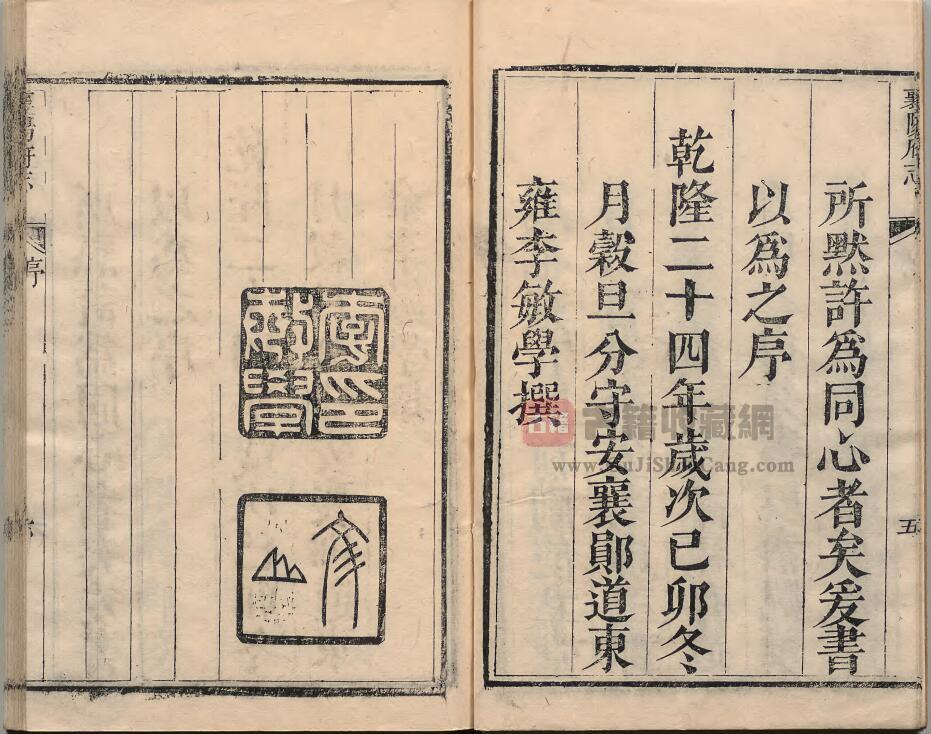 襄陽府志
五
所默許爲同心者矣爰書
以爲之序
乾隆二十四年歲次己卯冬
月穀旦分守安襄鄖道東
雍李敏學撰
古籍收藏網
www.GuJiShouCang.com
李印敏學
山
襄陽府志
序
六